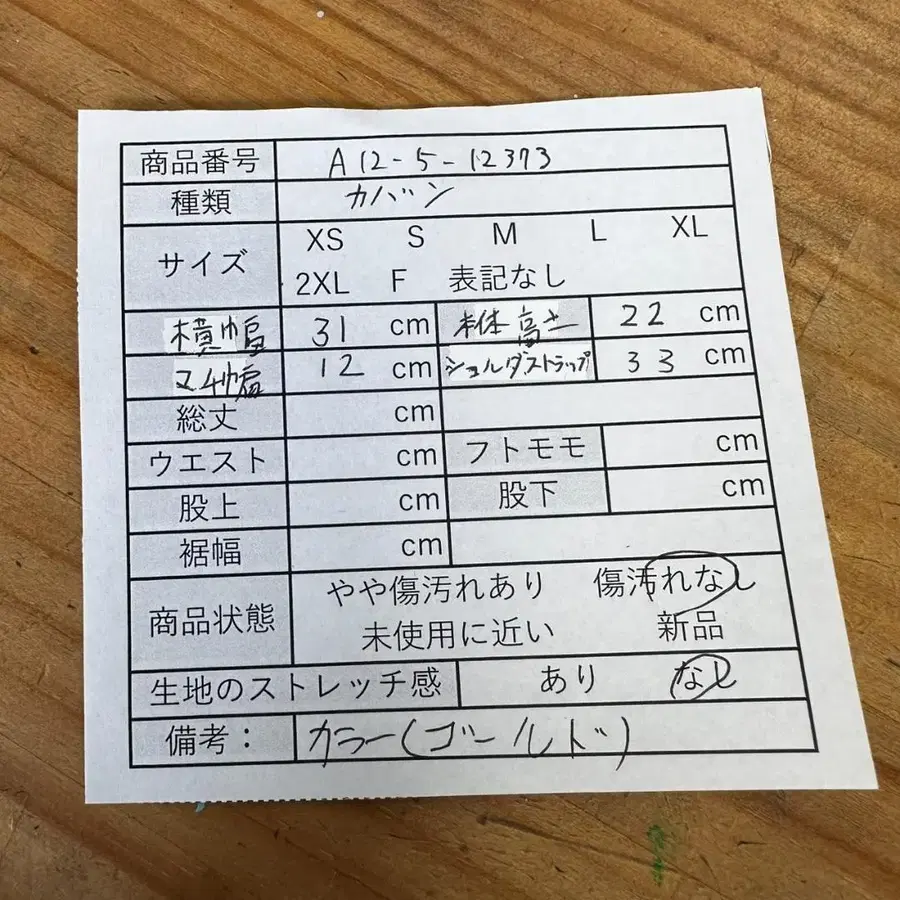 商品番号 A12-5-12373
種類 カバン
サイズ XS S M L XL
2XL F 表記なし
横幅 31 cm 本体高さ 22 cm
マチ幅 12 cm ショルダストラップ 33 cm
総丈 cm
ウエスト cm フトモモ cm
股上 cm 股下 cm
裾幅 cm
商品状態 やや傷汚れあり 傷汚れなし
未使用に近い 新品
生地のストレッチ感 あり なし
備考: カラー(ゴールド)